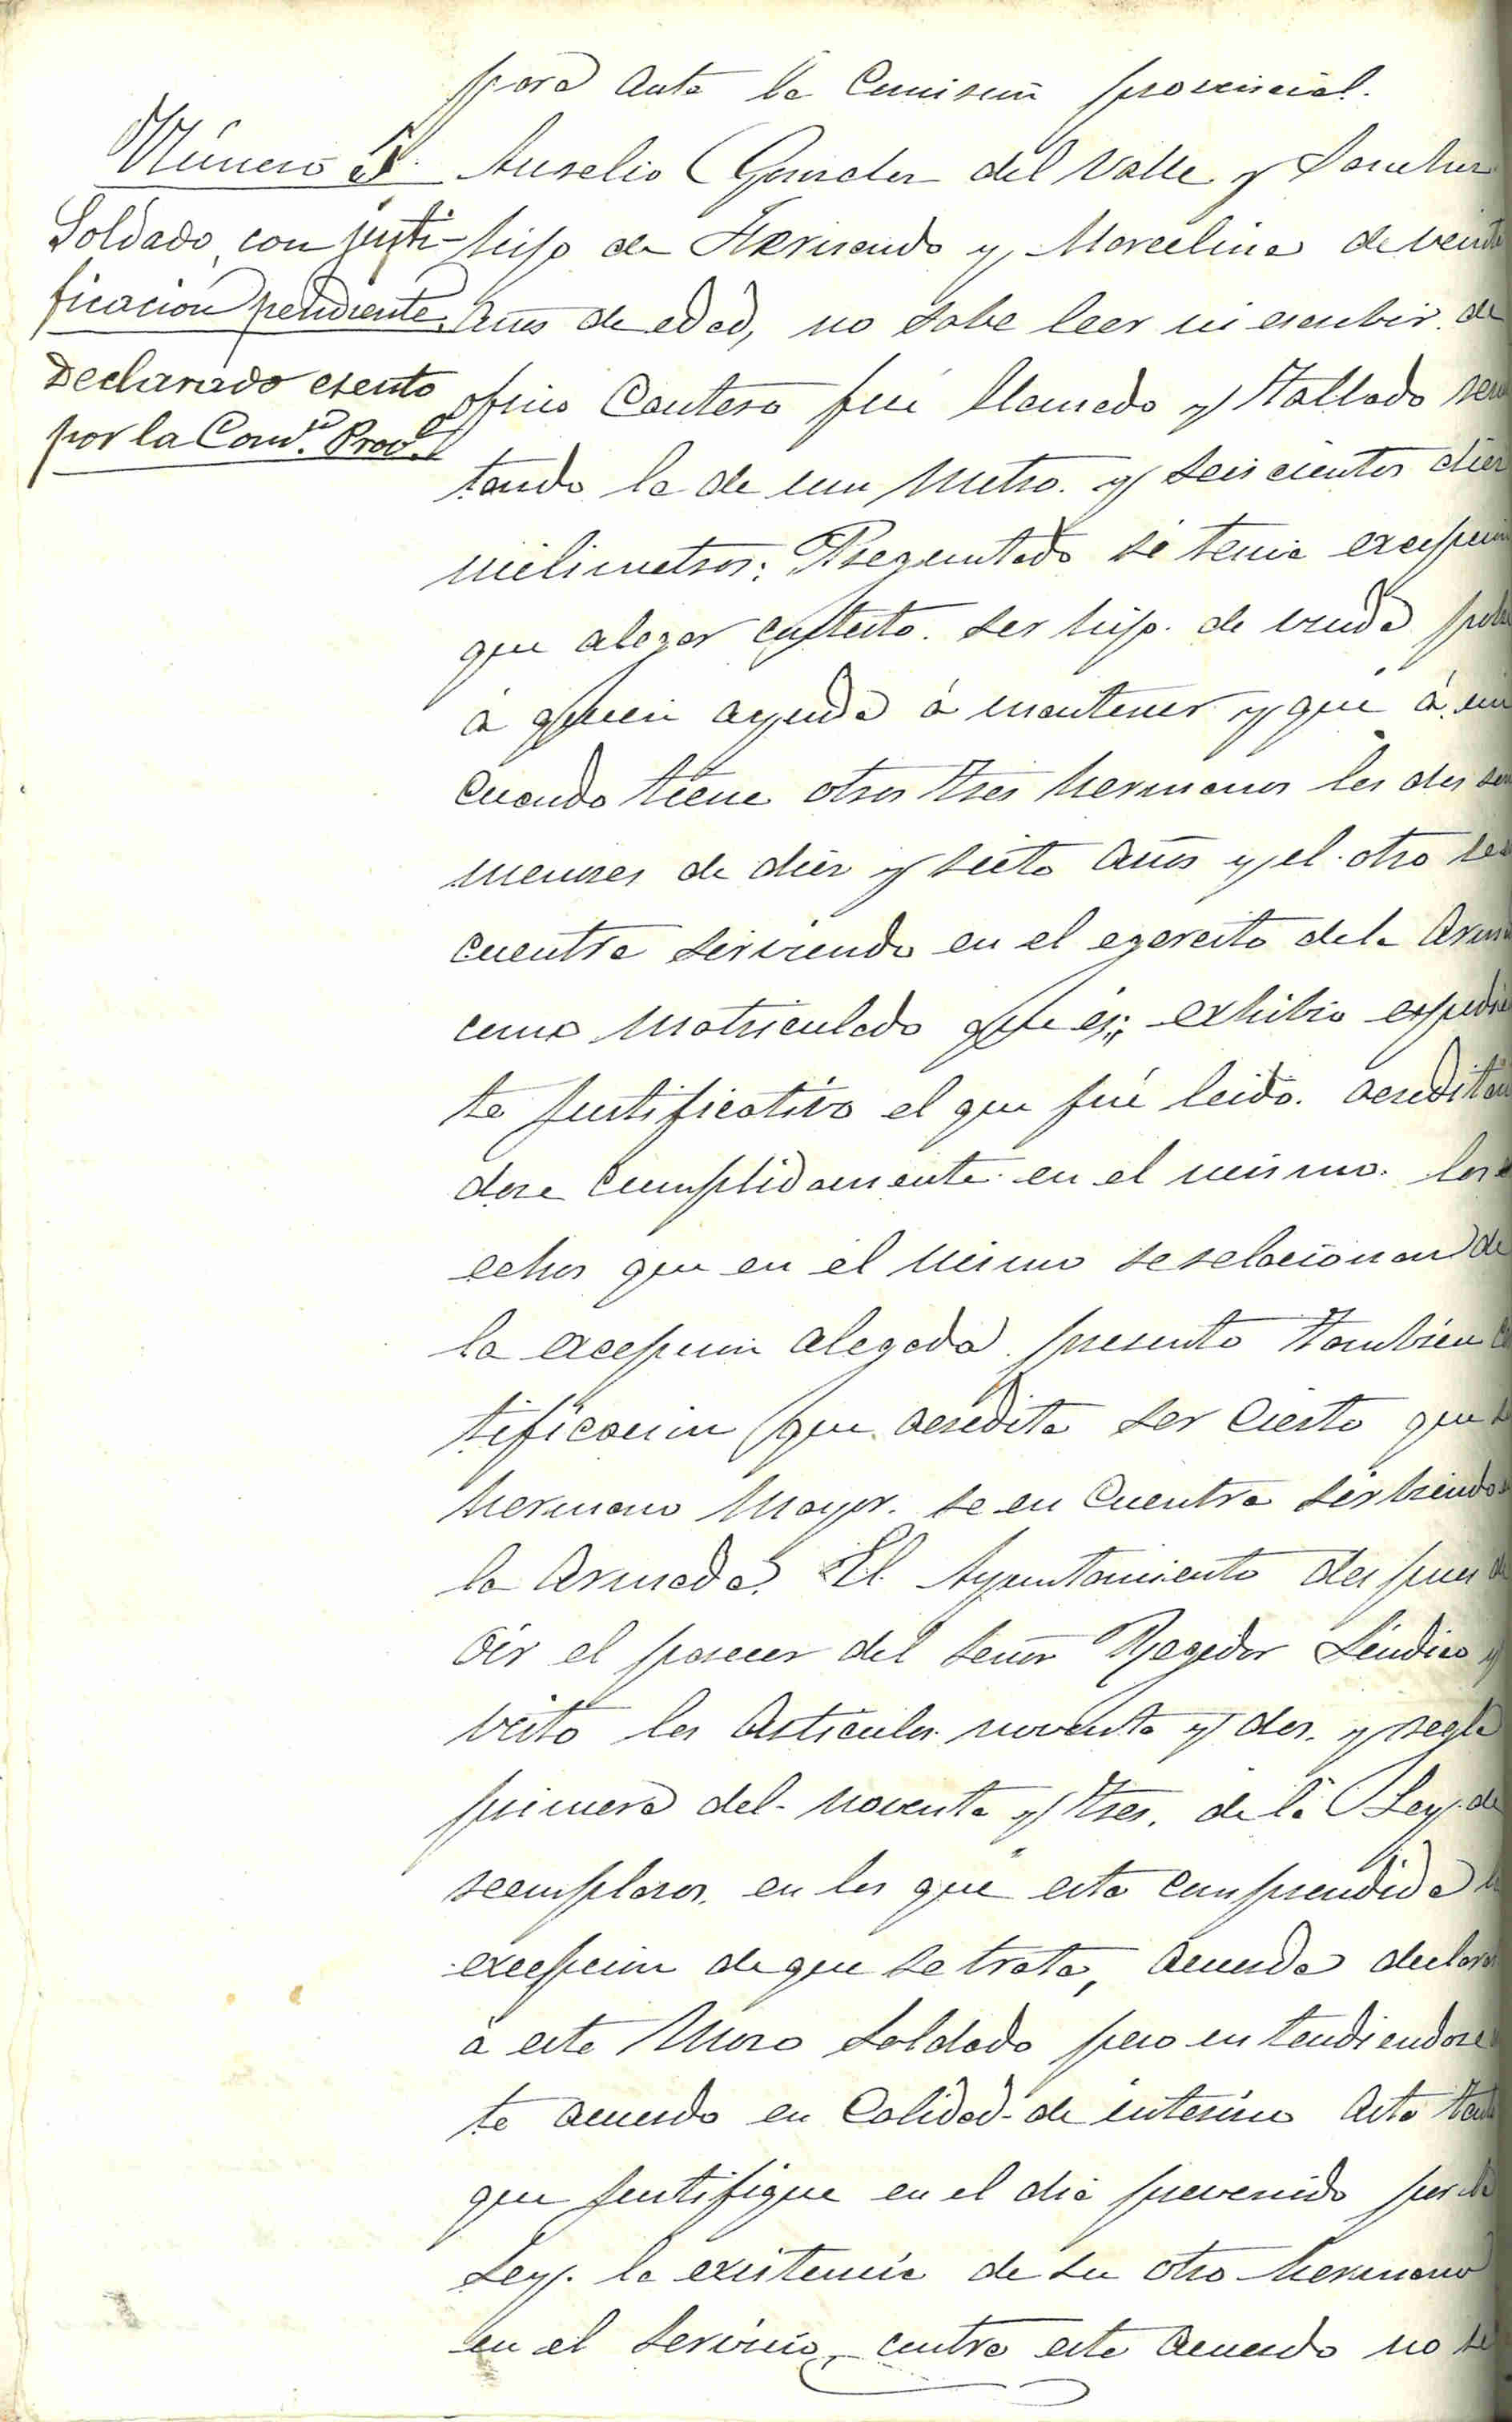 para ante la Comisión provincial.
Número 5.
Soldado, con justi-
ficación pendiente.
Declarado esento
por la Comon. Provl.
Aurelio Gonzalez del Valle y Sanchez
hijo de Fernando y Marcelina de veinte
años de edad, no sabe leer ni escribir. de
oficio Cantero fué llamado y tallado resul
tando la de un metro. y seis cientos diez
milimetros: Preguntado si tenia excepcion
que alegar contestó. ser hijo. de viuda pobre
á quien ayuda á mantener y que á un
cuando tiene otros tres hermanos los dos son
menores de diez y siete años y el otro se en
cuentra sirviendo en el egercito de la Arma
como matriculado que és; exhibio espedien
te justificativo el que fué leido. acreditan
dose cumplidamente en el mismo. los
echos que en el mismo se relacionan de
la excepcion alegada presento tambien cer
tificacion que acredita ser cierto que su
hermano mayor. se en cuentra sirbiendo en
la Armada. El Ayuntamiento despues de
oir el parecer del señor Regedor Síndico y
visto los articulos noventa y dos. y regla
primera del noventa y tres. de la Ley de
reemplazos. en los que esta comprendida la
excepcion de que se trata, acuerda declarar
á este mozo soldado pero entendiendose es
te acuerdo en calidad de interino asta tanto
que justifique en el dia prevenido por la
Ley. la existencia de su otro hermano
en el servicio, contra este acuerdo no se